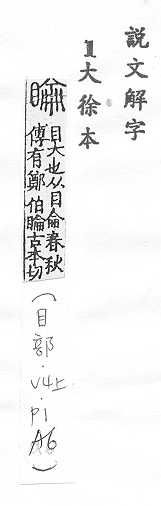 説文解字
1大徐本
睔
目大也从目侖春秋
傳有鄭伯睔古本切
(目部·V4上·P1
A6)